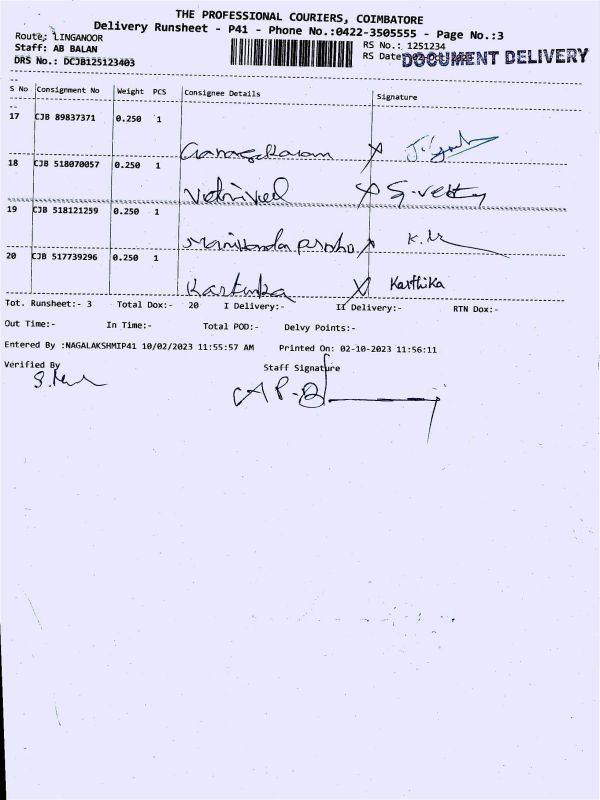 THE PROFESSIONAL COURIERS, COIMBATORE
Delivery Runsheet - P41 - Phone No.:0422-3505555 - Page No.:3
Route: LINGANOOR
Staff: AB BALAN
DRS No.: DCJB125123403
RS No.: 1251234
RS Date:
DOCUMENT DELIVERY
S No Consignment No Weight PCS Consignee Details Signature
17 CJB 89837371 0.250 1
18 CJB 518070057 0.250 1
Vetrivel
19 CJB 518121259 0.250 1
20 CJB 517739296 0.250 1
Karthika Karthika
Tot. Runsheet:- 3 Total Dox:- 20 I Delivery:- II Delivery:- RTN Dox:-
Out Time:- In Time:- Total POD:- Delvy Points:-
Entered By :NAGALAKSHMIP41 10/02/2023 11:55:57 AM Printed On: 02-10-2023 11:56:11
Verified By Staff Signature